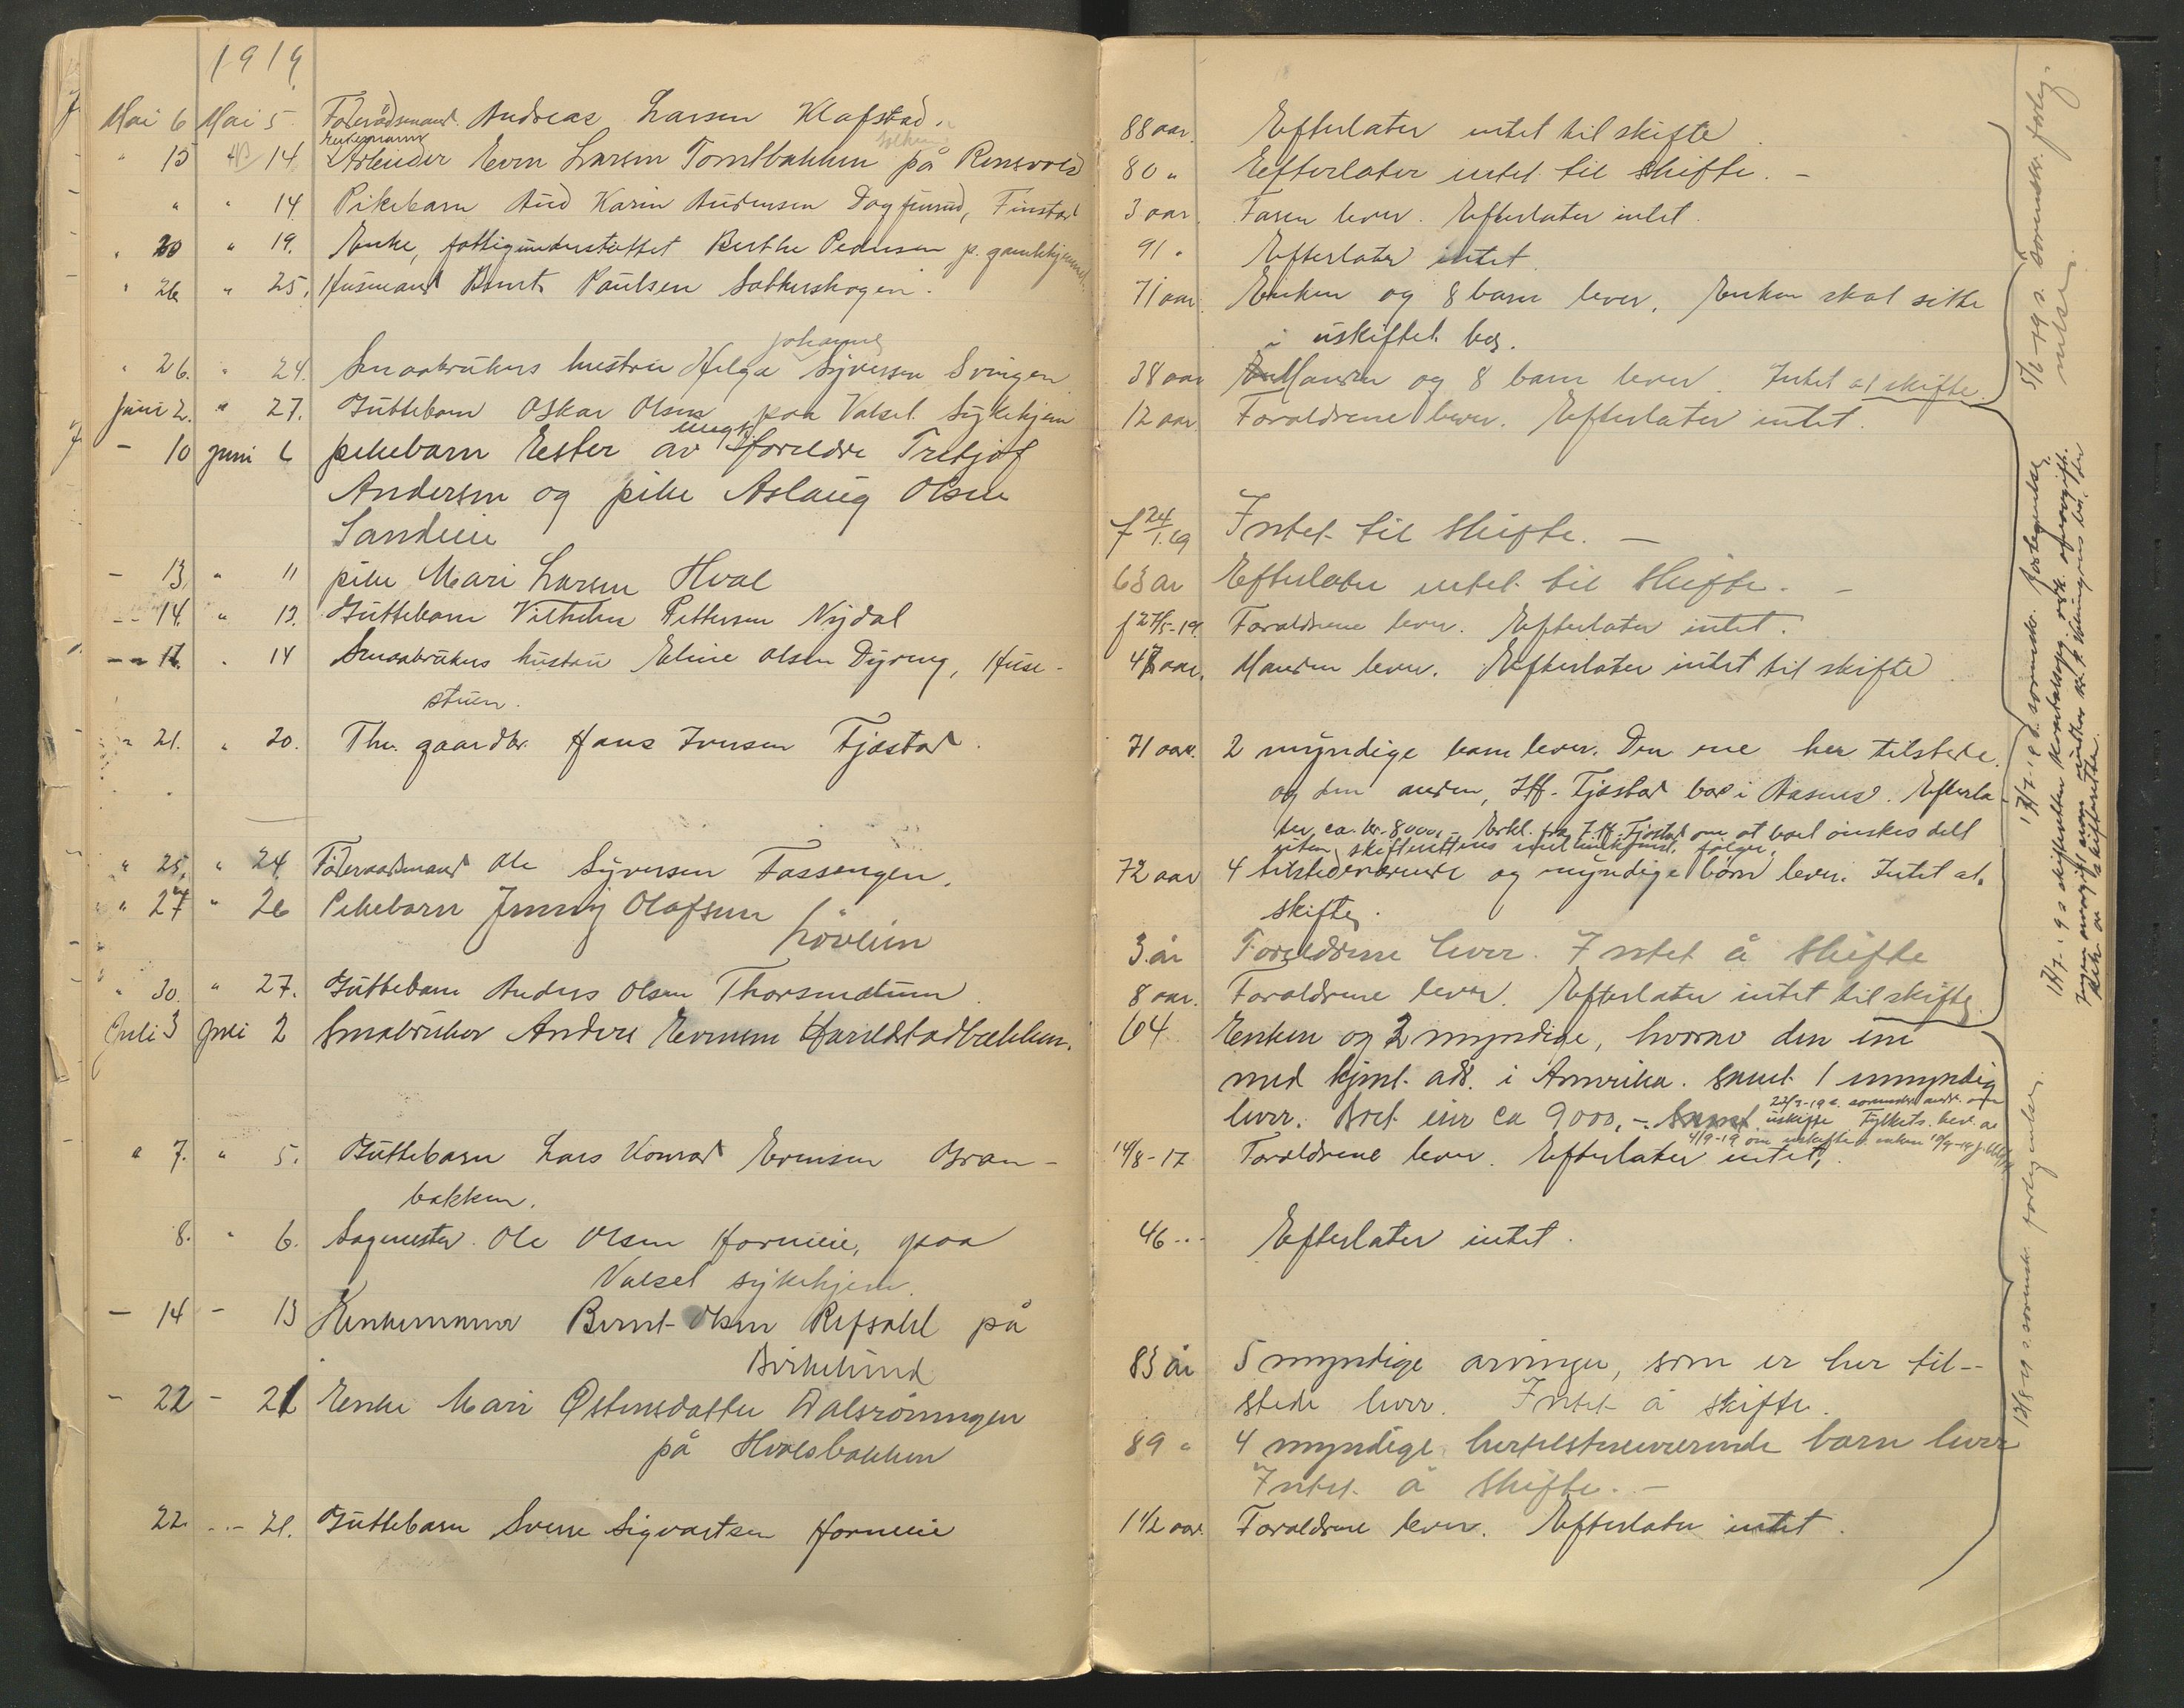 1919
Mai 6 Mai 5 Foderådsmand Andreas Larsen Klafstad.
Enkemann
" 15 " 14 Arbeider Even Larsen Tomtbakken på Rensvold
" " 14 Pikebarn Aud Karin Audensen Dagfinrud, Finstad
" 20 " 19. Enke, fattigunderstøttet Berthe Pedersen p. gamlehjemmet.
" 26 " 25. Husmand Bernt Paulsen Satherskogen.
Johanne
" 26. " 24. Smaabrukers hustru Helga Syversen Svingen
Juni 2. " 27. Guttebarn Oskar Olsen paa Valset Sykehjem
ungt
- 10 juni 6 pikebarn Ester av foreldre Tretjof
Andersen og pike Aslaug Olsen
Sandeie
- 13 " 11 pike Mari Larsen Hval
- 14. " 13. Guttebarn Vilhelm Pettersen Nydal
- 16. " 14 Smaabrukers hustru Eline Olsen Dyreng, Huse-
stuen.
" 21. " 20. Fhv. gaardbr. Hans Iversen Fjøstad.
" 25. " 24 Føderaadsmand Ole Syversen Fossengen.
" 27 " 26 Pikebarn Jenny Olafsen
Løvlien
" 30. " 27. Guttebarn Anders Olsen Thorsmatuen.
Juli 3 Juli 2 Småbruker Anders Evensen Haraldstadbakken.
" 7. " 5. Guttebarn Lars Konrad Evensen Gran-
bakken.
8. " 6. Sagmester Ole Olsen Horneie, paa
Valset sykehjem.
- 14 - 13 Enkemann Bernt Olsen Refsahl på
Birkelund
- 22 - 21 Enke Mari Østensdatter Dalsrøningen
på Hvalsbakken
22. - 21. Guttebarn Sverre Sigvartsen Horneie
88 aar. Efterlater intet til skifte.
80 " Efterlater intet til skifte. -
3 aar. Faren lever. Efterlater intet.
91 " Efterlater intet.
71 aar. Enken og 8 barn lever. Enken skal sitte
i uskiftet bo.
38 aar Manden og 8 barn lever. Intet at skifte.
12 aar. Forældrene lever. Efterlater intet.
f 24/1.19 Intet til skifte. -
63 år Efterlater intet til skifte. -
f 27/5-19. Forældrene lever. Efterlater intet.
48 aar. Manden lever. Efterlater intet til skifte.
71 aar. 2 myndige barn lever. Den ene her tilstede.
og den anden, Hf. Fjøstad bor i Aasnes. Efterla-
ter ca. kr. 8000,- Erkl. fra Hf. Fjøstad om at boet ønskes delt
uten skifterettens mellemkomst følger.
72 aar 4 tilstedeværende og myndige børn lever. Intet at
skifte.
3 år Foreldrene lever. Intet å skifte
8 aar. Forældrene lever. Efterlater intet til skifte.
64 Enken og 2 myndige, hvorav den ene
med kjent adr. i Amerika. samt 1 umyndig
lever. Boet eier ca 9000,-. uskifte Fylkets bev. av
4/9-19 om uskifte
14/8-17 Forældrene lever. Efterlater intet.
46 " Efterlater intet.
83 år 5 myndige arvinger, som er her til-
stede lever. Intet å skifte.
89 " 4 myndige hertilstedeværende barn lever
Intet å skifte. -
1 1/2 aar. Forældrene lever. Efterlater intet.
5/6-19 s. sorenskr. forteg-
nelse.
17/7-19 s. sorenskr. fortegnelse.
13/8-19 s. sorenskr. fortegnelse.